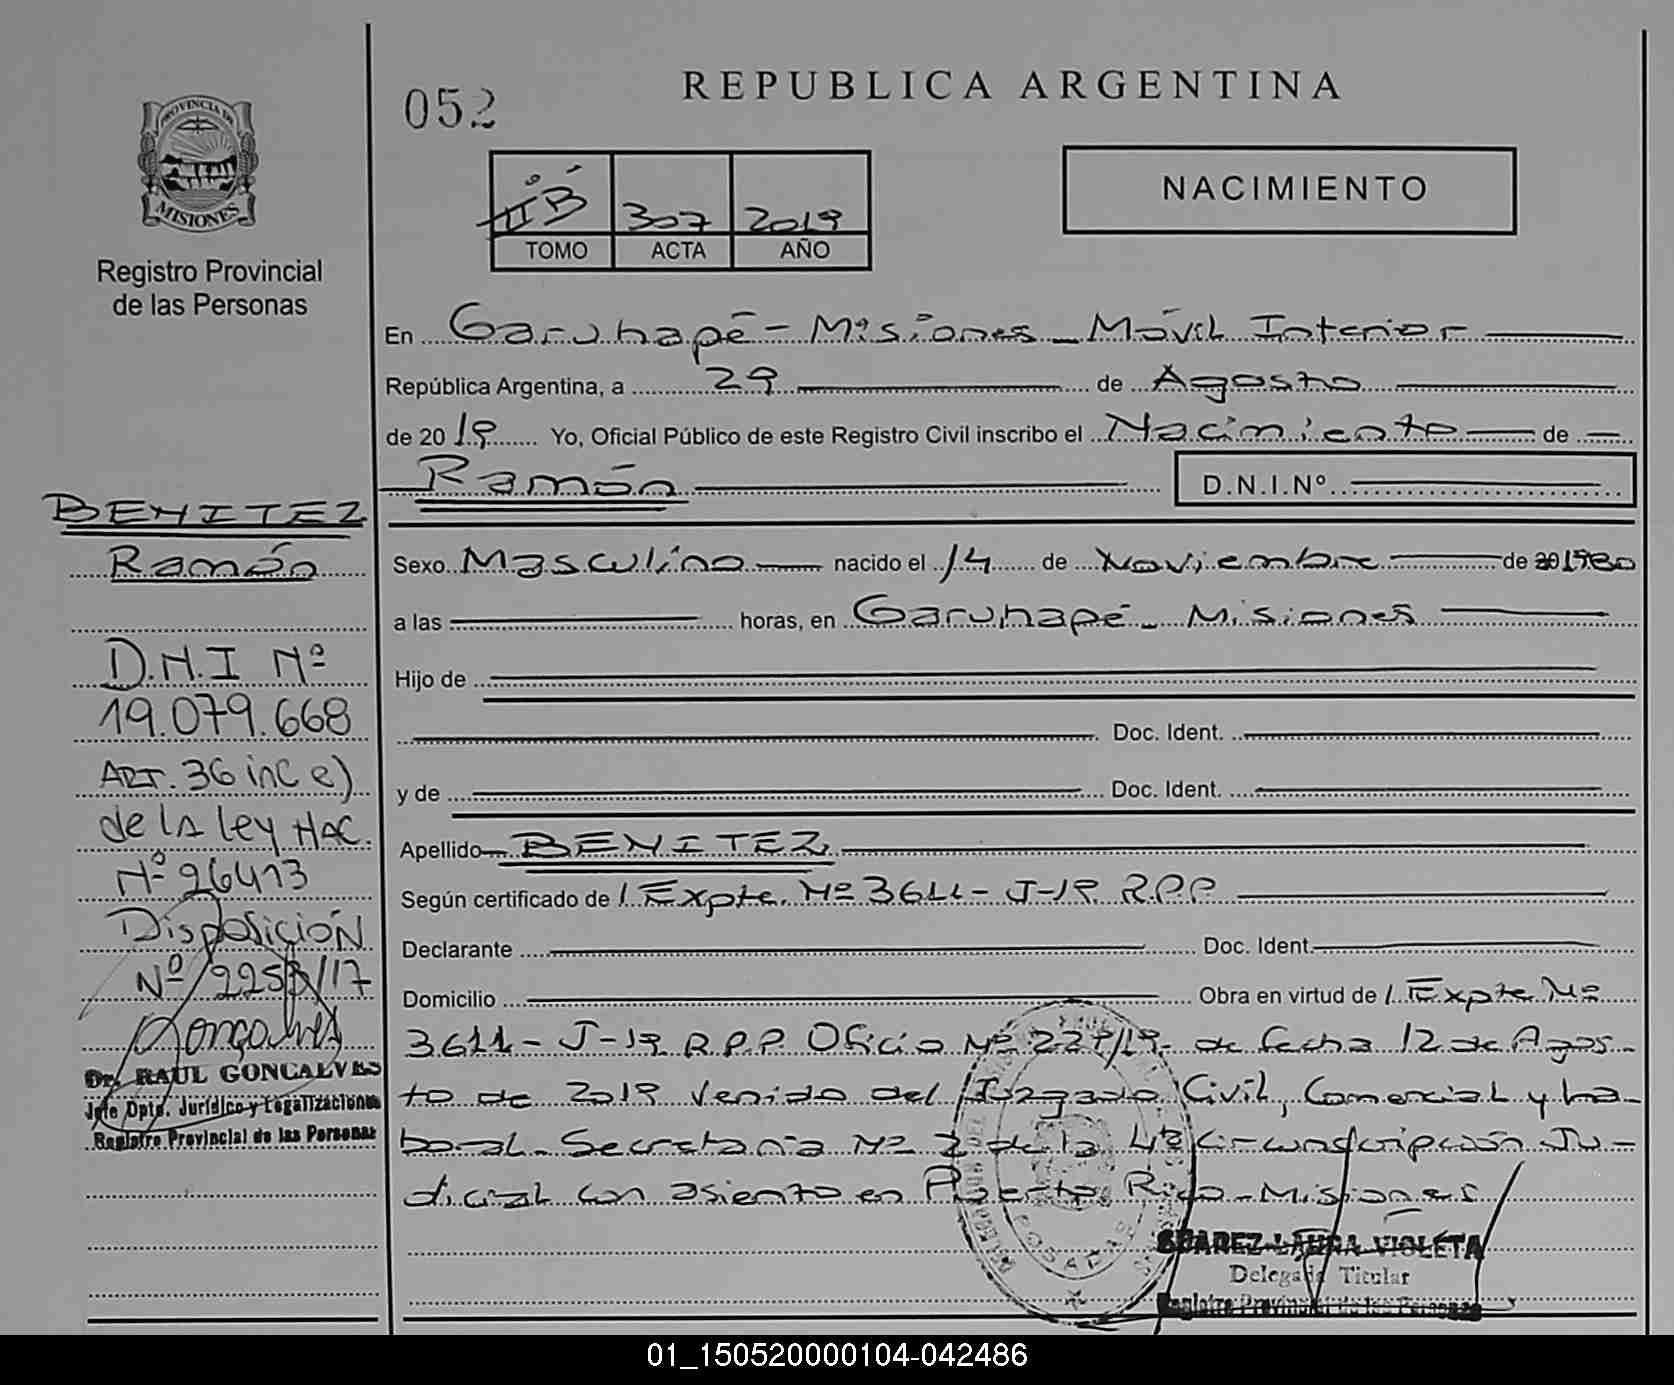 052
REPUBLICA ARGENTINA
PROVINCIA DE
MISIONES
Registro Provincial
de las Personas
IIº B 307 2019
TOMO ACTA AÑO
NACIMIENTO
En Garuhapé - Misiones - Móvil Interior
República Argentina, a 29 de Agosto
de 2019 Yo, Oficial Público de este Registro Civil inscribo el Nacimiento de
Ramón
D.N.I.Nº
Sexo Masculino nacido el 14 de Noviembre de 1980
a las horas, en Garuhapé - Misiones
Hijo de
Doc. Ident.
y de Doc. Ident.
Apellido BENITEZ
Según certificado de / Expte. Nº 3611 - J-19 R.P.P
Declarante Doc. Ident.
Domicilio Obra en virtud de / Expte Nº
3611 - J-19 R.P.P Oficio Nº 227/19 de fecha 12 de Agos-
to de 2019 Venido del Juzgado Civil, Comercial y La-
boral - Secretaria Nº 2 de la 4ta Circunscripción Ju-
dicial con asiento en Puerto Rico - Misiones
SUAREZ LAURA VIOLETA
Delegada Titular
Registro Provincial de las Personas
POSADAS
BENITEZ
Ramón
D.N.I Nº
19.079.668
ART. 36 inc e)
de la ley NAC.
Nº 26413
Disposición
Nº 2253/17
Goncalves
Dr. RAUL GONCALVES
Jefe Dpto. Jurídico y Legalizaciones
Registro Provincial de las Personas
01_150520000104-042486